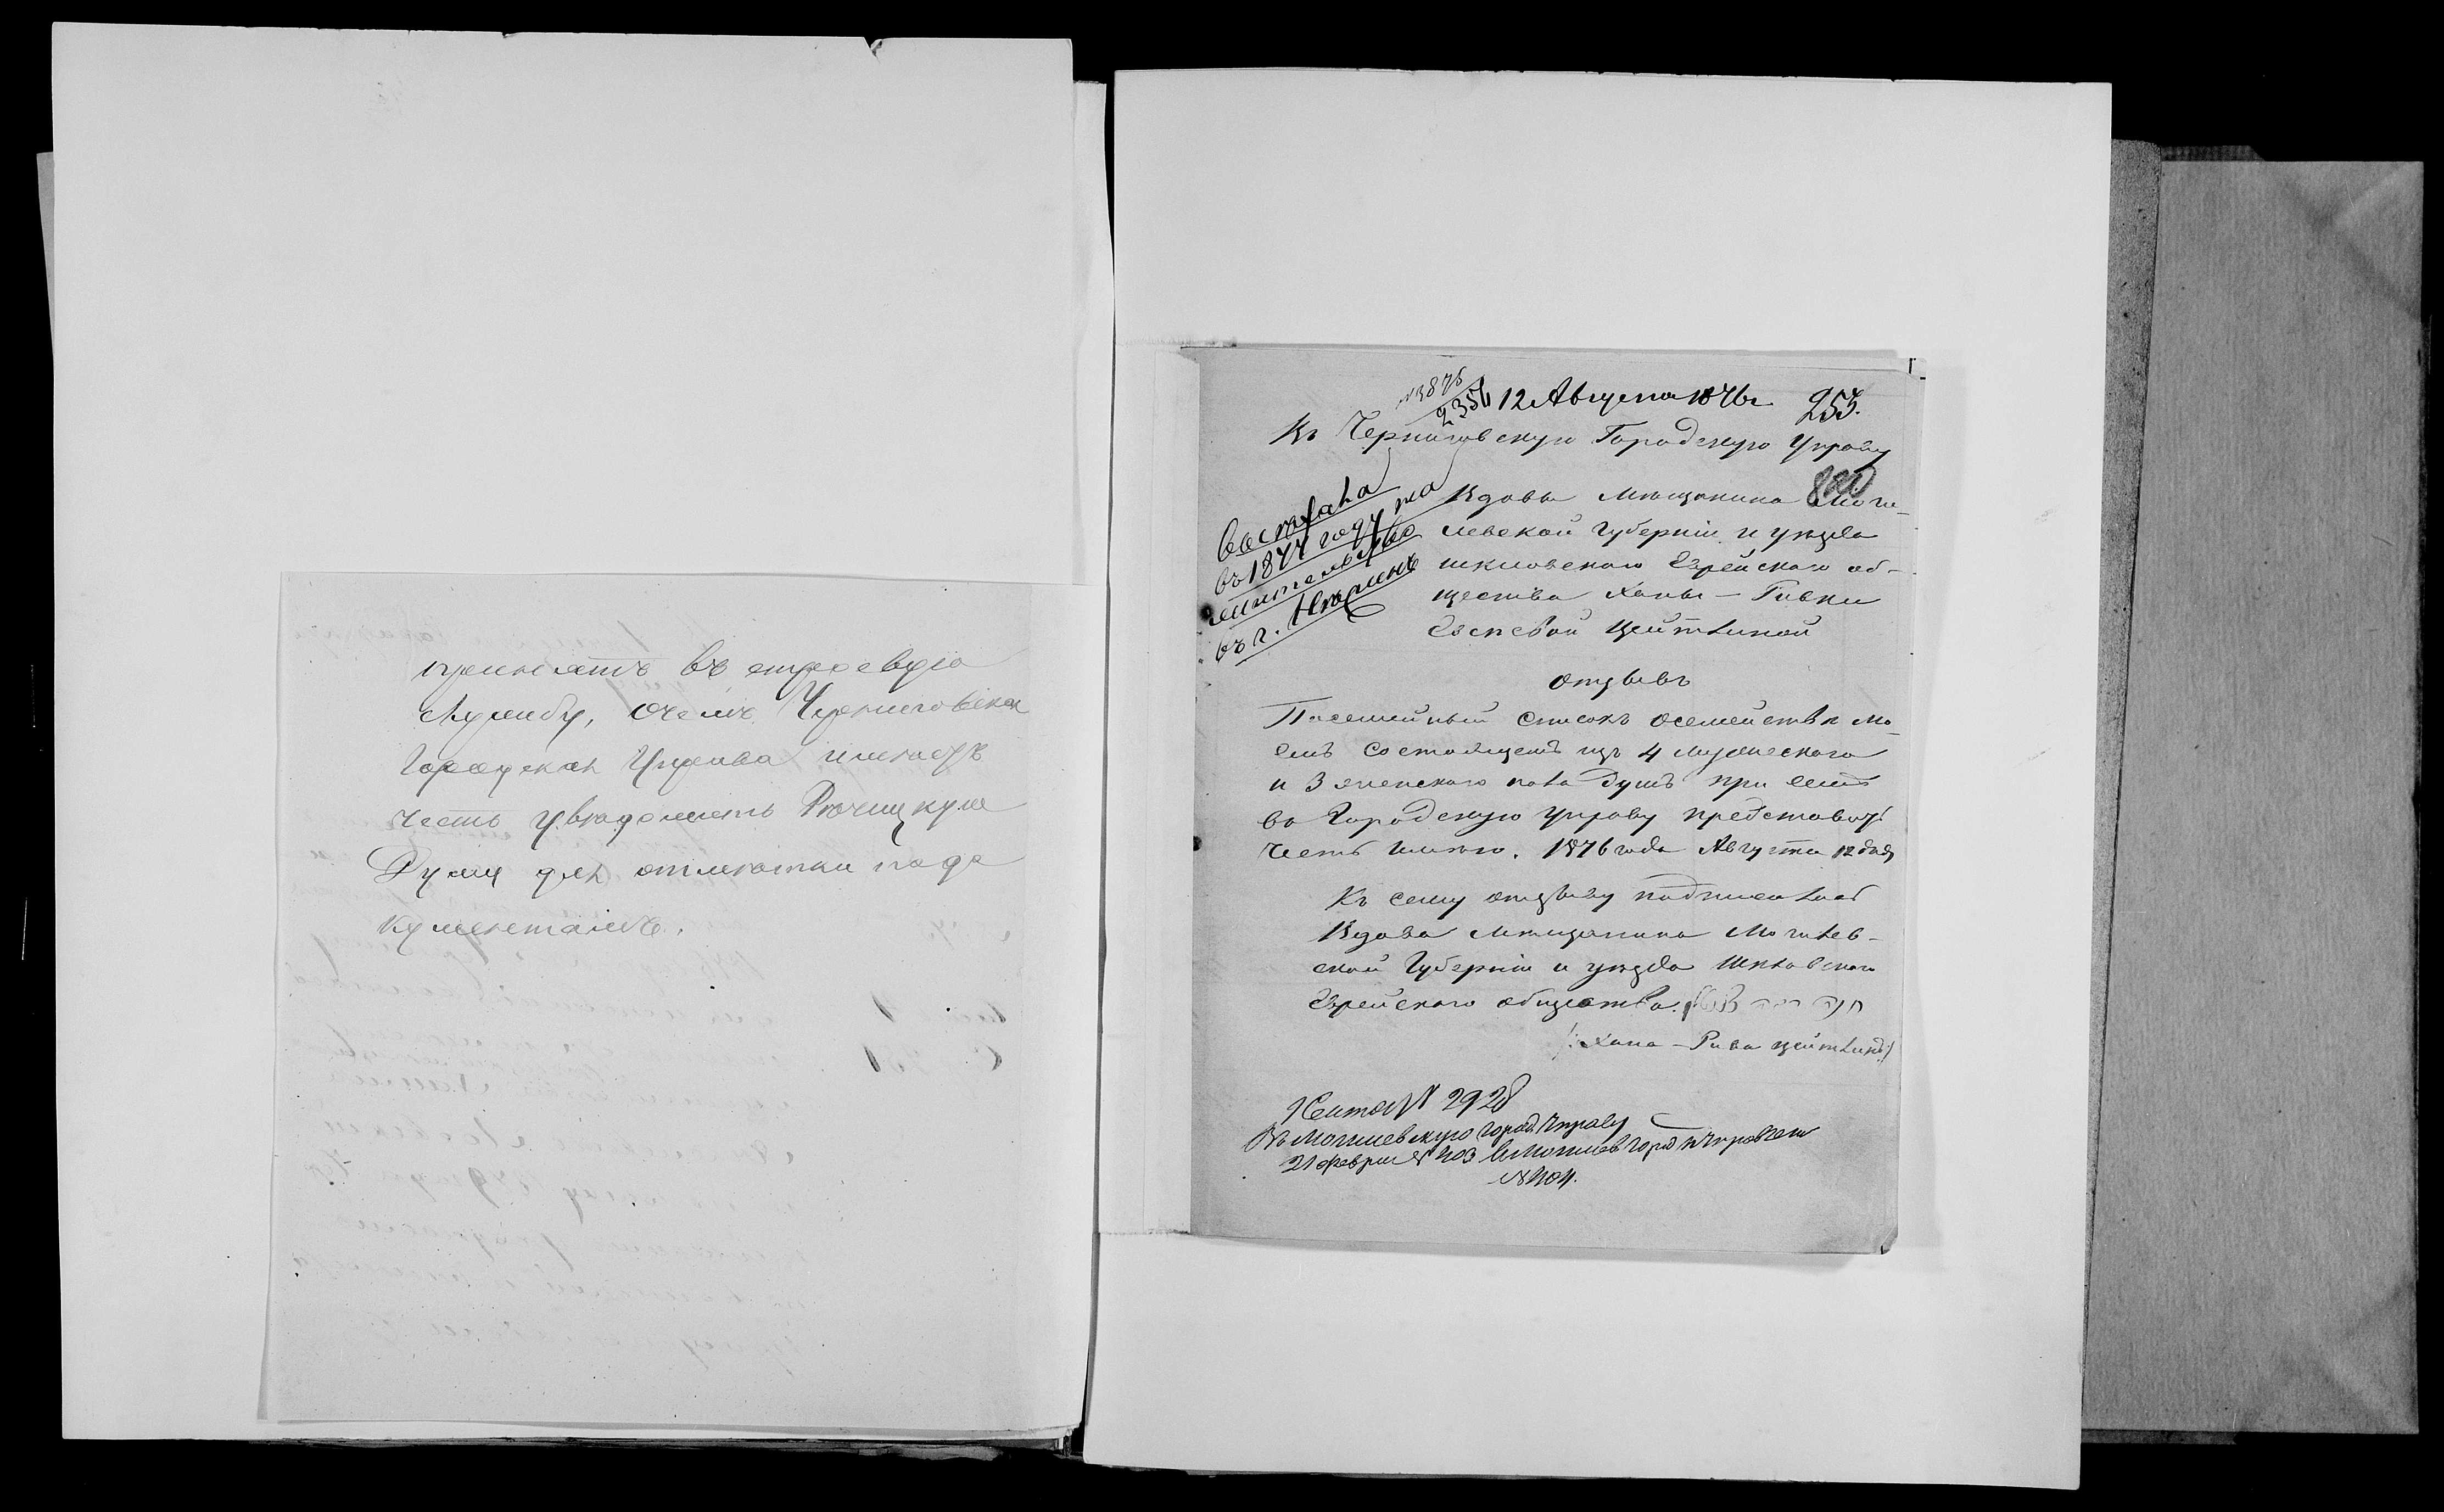 принятъ въ строевую
службу, о чемъ Черниговская
Городская Управа имѣетъ
честь увѣдомить Рѣчицкую
Думу для отмѣтки по до
кументамъ.
№3875
2356 12 Августа 1876г. 253.
Въ Черниговскую Городскую Управу
880
Вдовы мѣщанина Моги-
левской Губерніи и уѣзда
шкловскаго Еврейскаго об-
щества Ханы-Ривки
Цейтлиной
въ 1877 году на
жительство
въ г.
отзывъ
Посемейный списокъ о семействѣ мо-
емъ состоящемъ изъ 4 мужескаго
и 3 женскаго пола душъ при семъ
въ Городскую Управу представить
честь имѣю. 1876 года Августа 12 дня
Къ сему отзыву подписалась
Вдова мѣщанина Могилев-
ской Губерніи и уѣзда Шкловскаго
Еврейскаго общества.
/: Хана-Рива Цейтлина :/
№ 2928
Въ Могилевскую Город. Управу
21 Февраля № 403 Могилев Город Управ
№ 404.